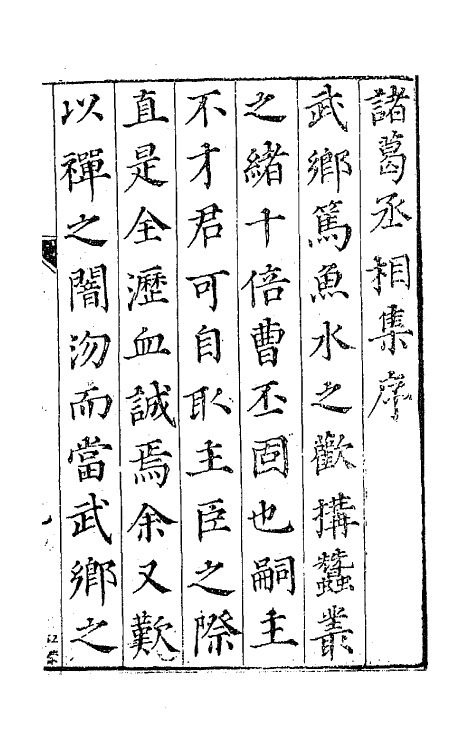 諸葛丞相集序
武鄉篤魚水之歡搆蠶叢
之緒十倍曹丕固也嗣主
不才君可自取主臣之際
直是全瀝血誠焉余又歎
以禪之闇沕而當武鄉之